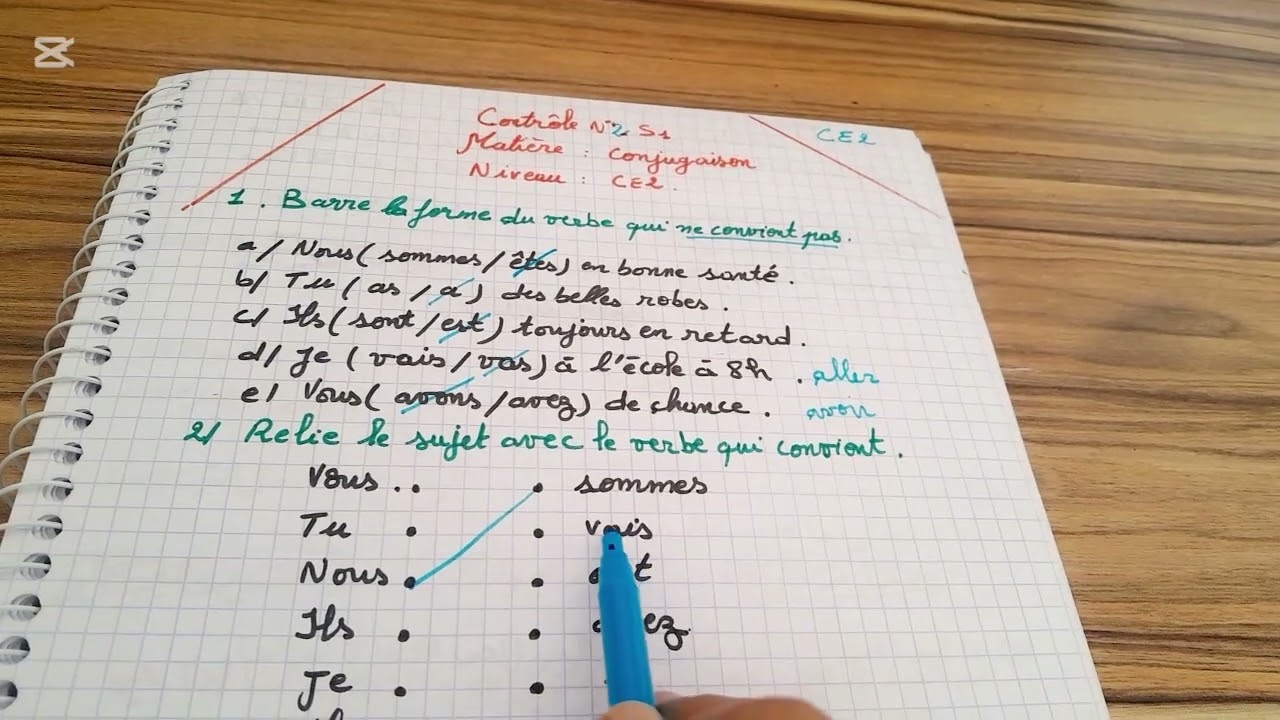 Contrôle N°2 S1
CE2
Matière : conjugaison
Niveau : CE2.
1. Barre la forme du verbe qui ne convient pas.
a/ Nous ( sommes / êtes ) en bonne santé.
b/ Tu ( as / a ) des belles robes.
c/ Ils ( sont / est ) toujours en retard.
d/ Je ( vais / vas ) à l'école à 8h . aller
e/ Vous ( avons / avez ) de chance . avoir
2/ Relie le sujet avec le verbe qui convient.
Vous . . . sommes
Tu . . vais
Nous . .
Ils . .
Je . .